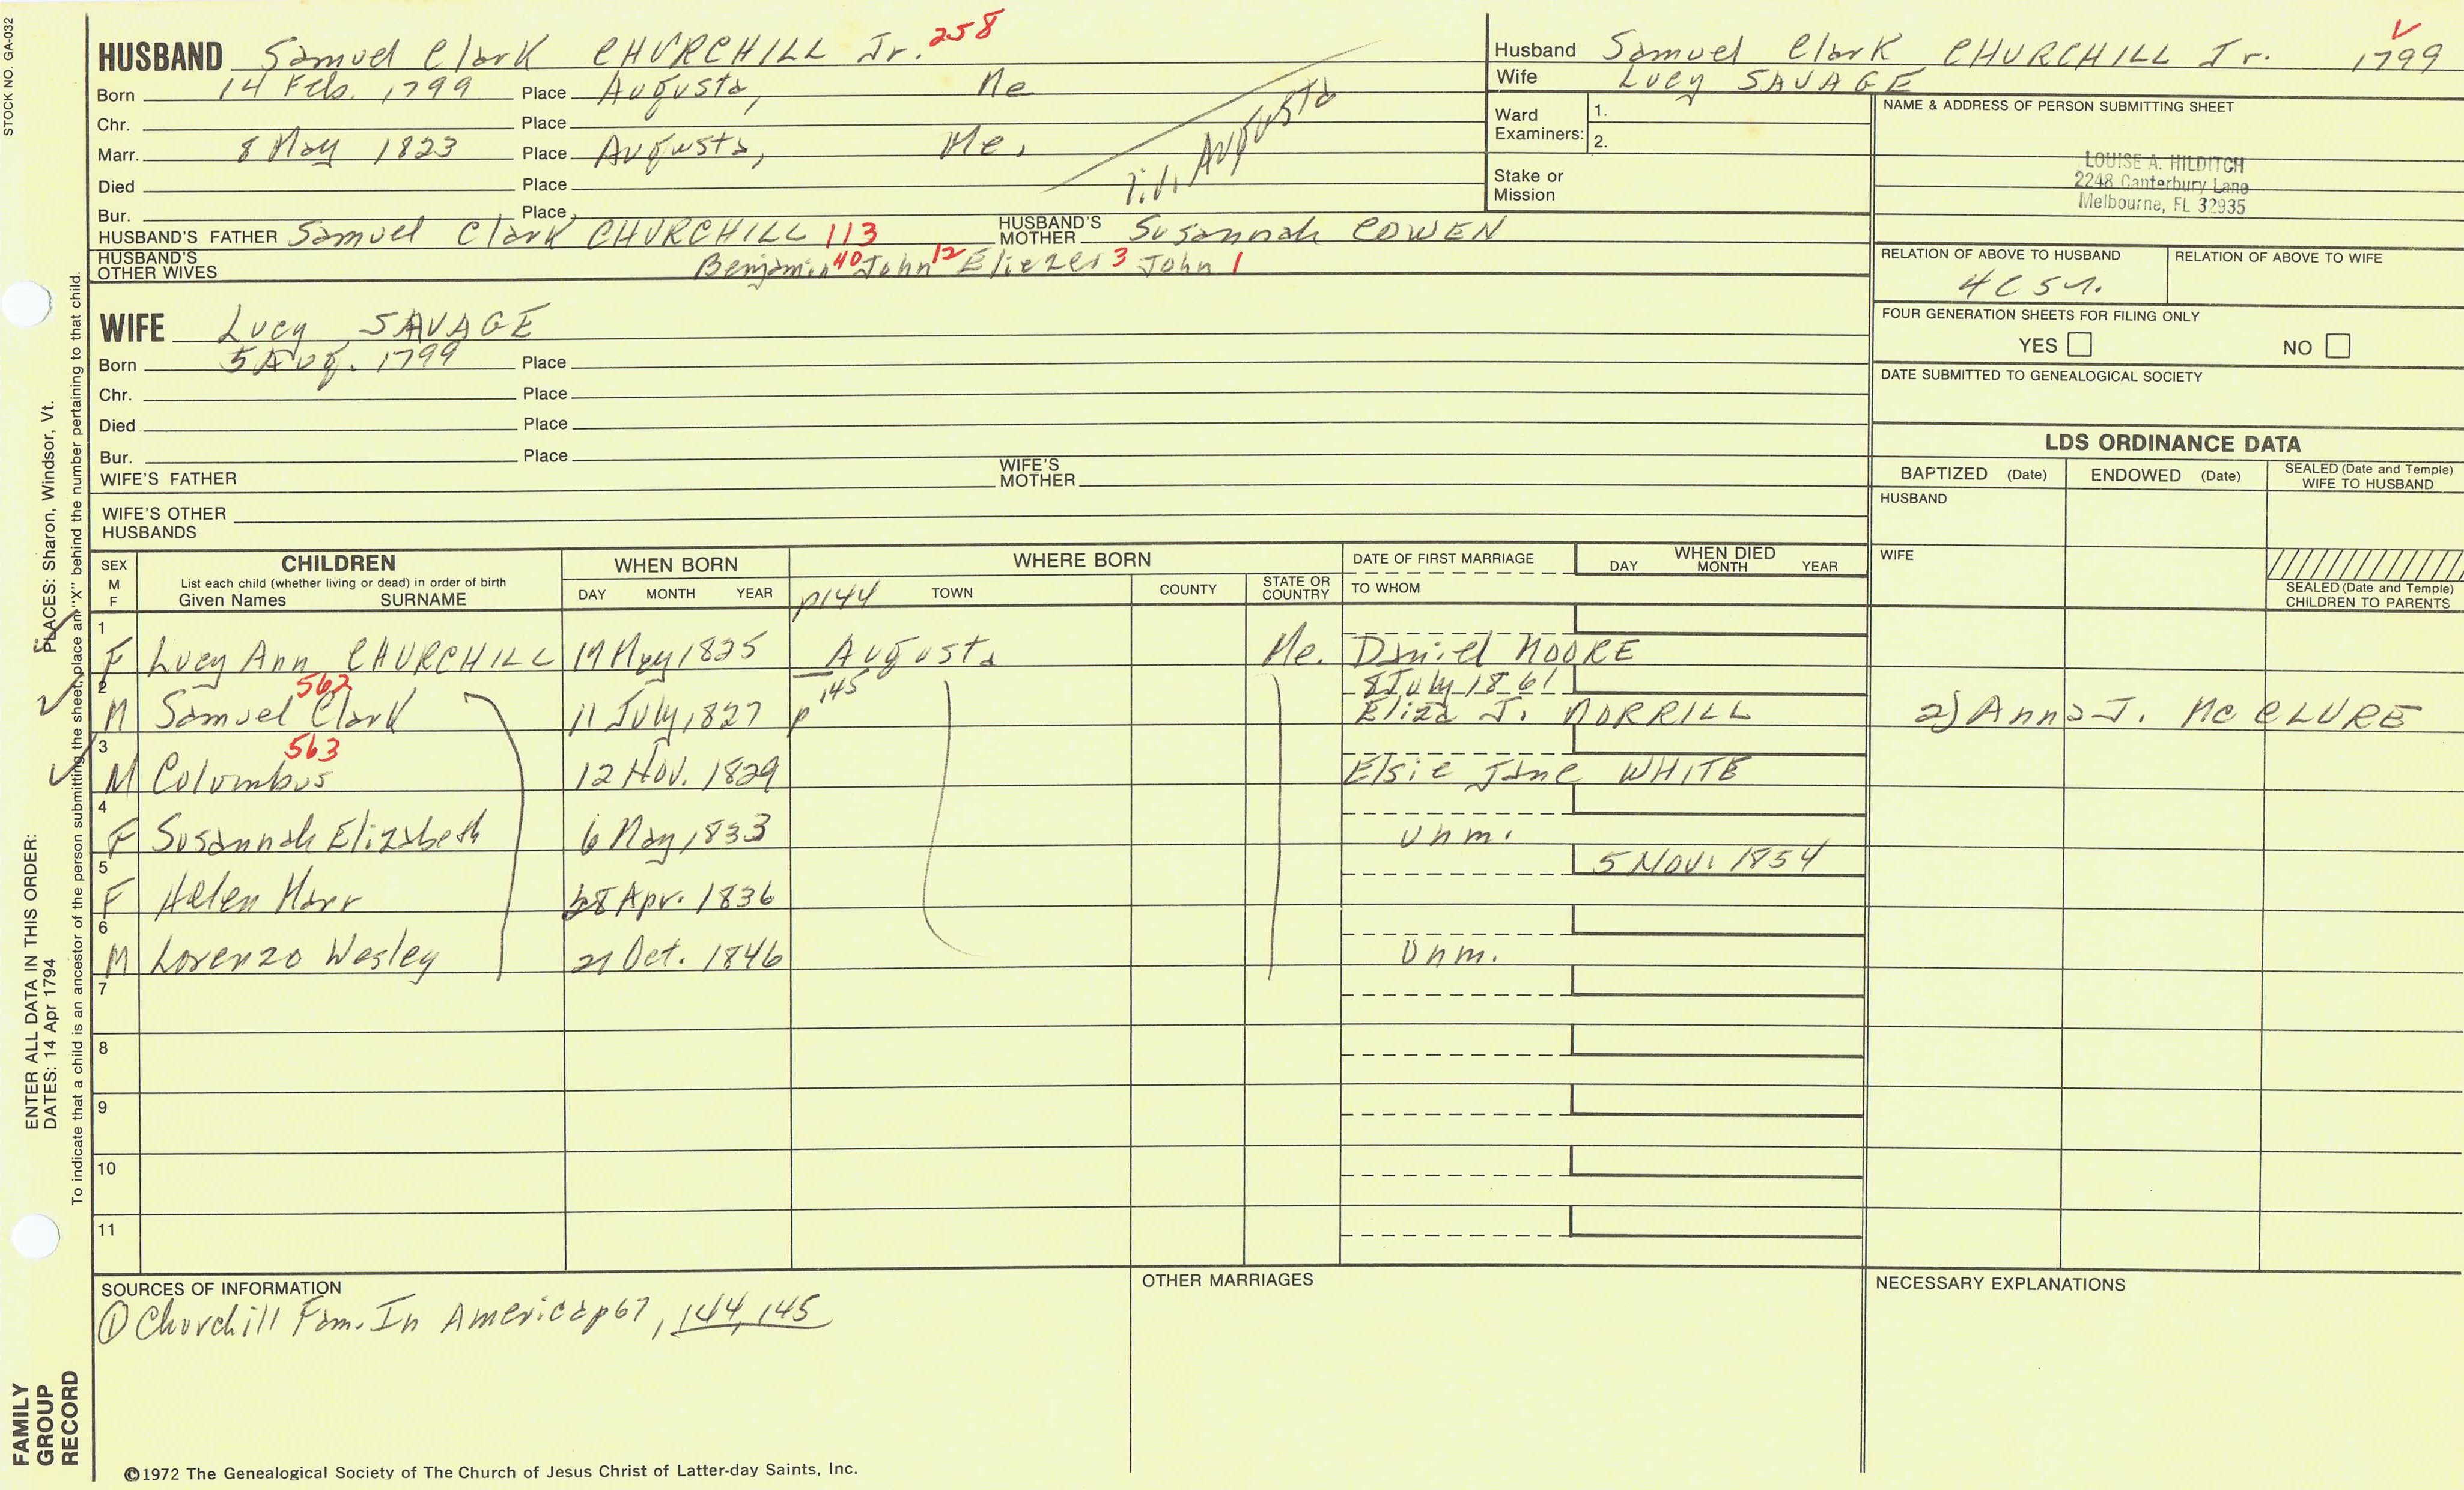 STOCK NO. GA-032
HUSBAND Samuel Clark CHURCHILL Jr. 258
Born 14 Feb. 1799 Place Augusta, Me
Chr. Place
Marr. 8 May 1823 Place Augusta, Me,
Died Place
Bur. Place
Augusta
HUSBAND'S FATHER Samuel Clark CHURCHILL 113 HUSBAND'S MOTHER Susannah COWEN
HUSBAND'S OTHER WIVES Benjamin 40 John 12 Eliezer 3 John 1
Husband Samuel Clark CHURCHILL Jr. 1799
Wife Lucy SAVAGE
Ward Examiners: 1.
2.
Stake or Mission
NAME & ADDRESS OF PERSON SUBMITTING SHEET
LOUISE A. HILDITCH
2248 Canterbury Lane
Melbourne, FL 32935
RELATION OF ABOVE TO HUSBAND RELATION OF ABOVE TO WIFE
4C 5r.
FOUR GENERATION SHEETS FOR FILING ONLY
YES NO
DATE SUBMITTED TO GENEALOGICAL SOCIETY
WIFE Lucy SAVAGE
Born 5 Aug. 1799 Place
Chr. Place
Died Place
Bur. Place
WIFE'S FATHER WIFE'S MOTHER
WIFE'S OTHER HUSBANDS
LDS ORDINANCE DATA
BAPTIZED (Date) ENDOWED (Date) SEALED (Date and Temple) WIFE TO HUSBAND
HUSBAND
WIFE
SEALED (Date and Temple) CHILDREN TO PARENTS
SEX M F CHILDREN List each child (whether living or dead) in order of birth Given Names SURNAME WHEN BORN DAY MONTH YEAR WHERE BORN p144 TOWN COUNTY STATE OR COUNTRY DATE OF FIRST MARRIAGE TO WHOM WHEN DIED DAY MONTH YEAR
1 F Lucy Ann CHURCHILL May 1825 Augusta Me. Daniel MOORE
2 M Samuel Clark 562 11 July 1827 p 145 8 July 1861 Eliza J. MORRILL 2) Anna J. McCLURE
3 M Columbus 563 12 Nov. 1829 Elsie Jane WHITE
4 F Susannah Elizabeth 6 May 1833 Unm.
5 F Helen Marr 28 Apr. 1836 5 Nov. 1854
6 M Lorenzo Wesley 21 Oct. 1846 Unm.
7
8
9
10
11
SOURCES OF INFORMATION
① Churchill Fam. In America p67, 144, 145
OTHER MARRIAGES
NECESSARY EXPLANATIONS
©1972 The Genealogical Society of The Church of Jesus Christ of Latter-day Saints, Inc.
FAMILY GROUP RECORD
ENTER ALL DATA IN THIS ORDER:
DATES: 14 Apr 1794
PLACES: Sharon, Windsor, Vt.
To indicate that a child is an ancestor of the person submitting the sheet, place an "X" behind the number pertaining to that child.